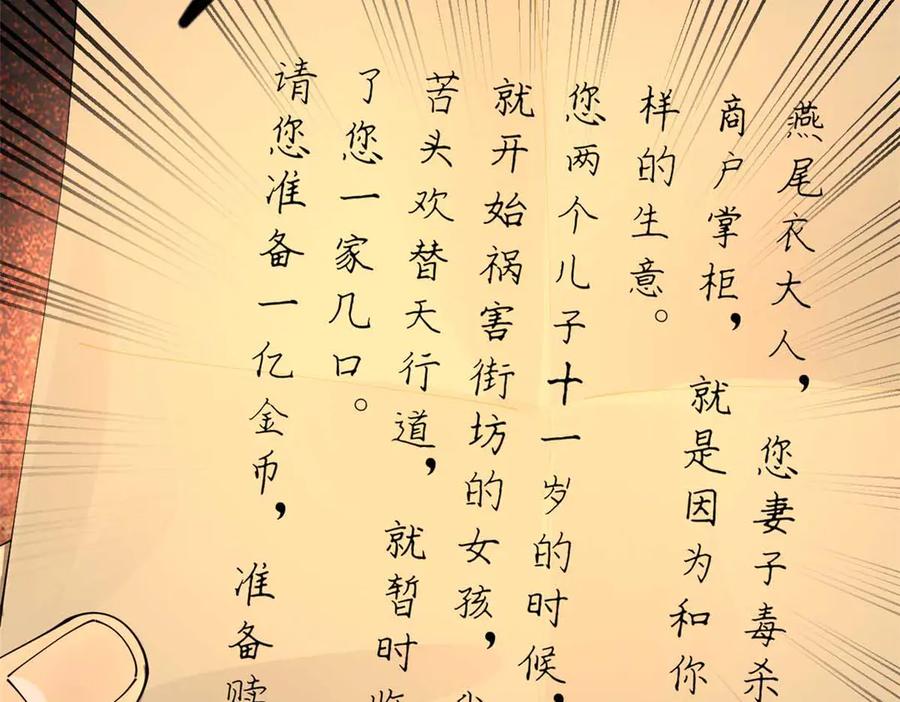 燕尾衣大人，您妻子毒杀
商户掌柜，就是因为和你
样的生意。
您两个儿子十一岁的时候，
就开始祸害街坊的女孩，
苦头欢替天行道，就暂时
了您一家几口。
请您准备一亿金币，准备赎